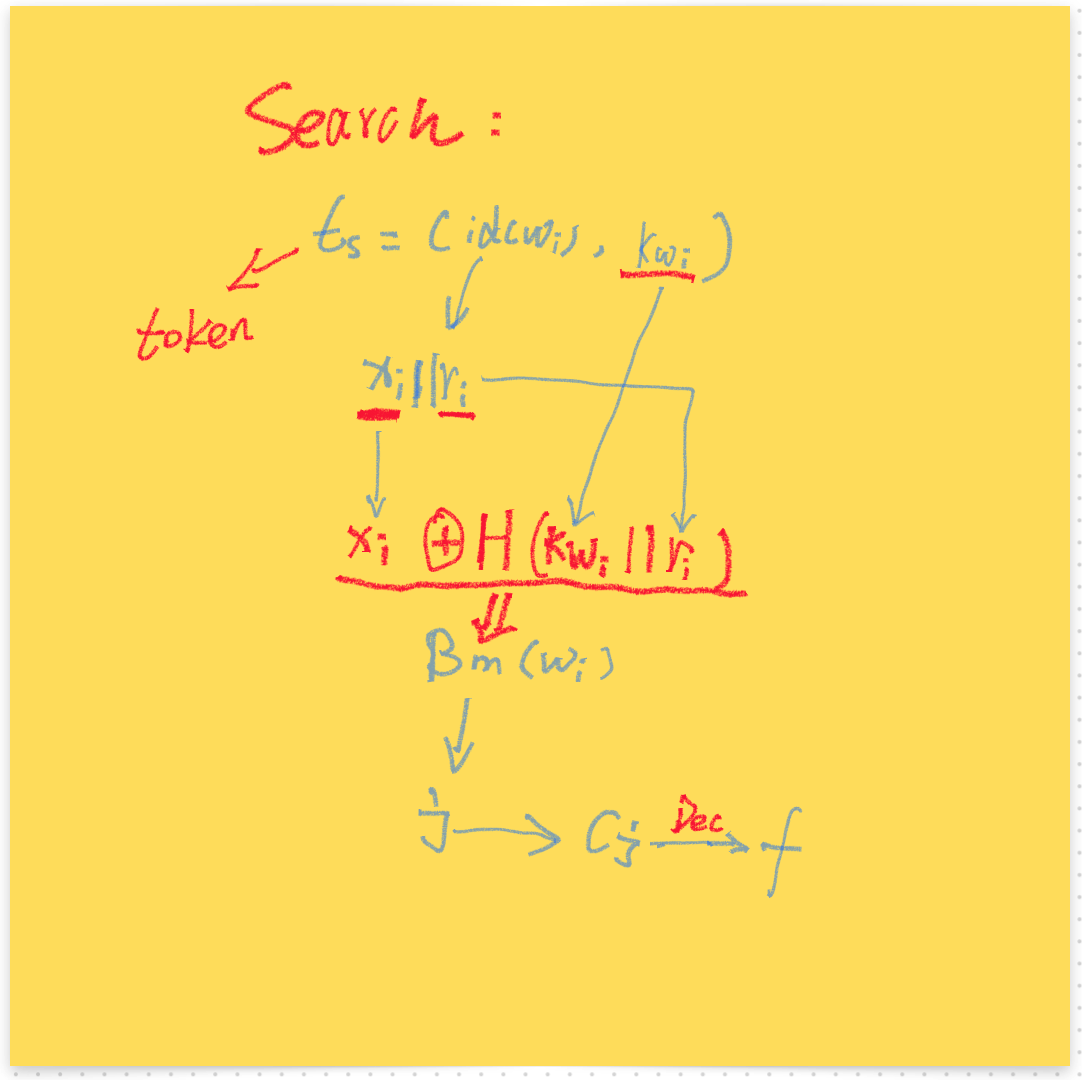 Search :
ts = (id(wi), kwi)
token
xi||ri
xi ⊕ H(kwi||ri)
Bm(wi)
j → Cj Dec → f